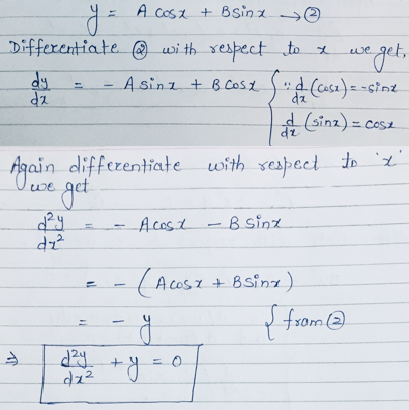 y = A cosx + B sinx → ②
Differentiate ② with respect to x we get,
dy/dx = - A sinx + B cosx { ∵ d/dx (cosx) = -sinx
d/dx (sinx) = cosx
Again differentiate with respect to 'x'
we get
d²y/dx² = - A cosx - B sinx
= - (A cosx + B sinx)
= - y { from ②
⇒ d²y/dx² + y = 0